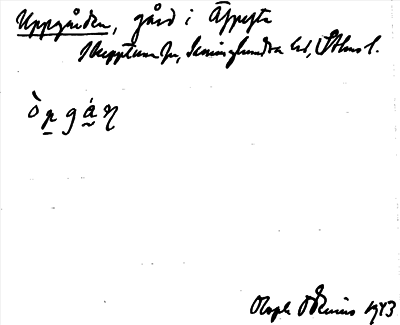 Uppgården, gård i Äppsta
Skepptuna sn, Seminghundra hd, Sthms l.
ò p g á ŋ
Odenius 1943